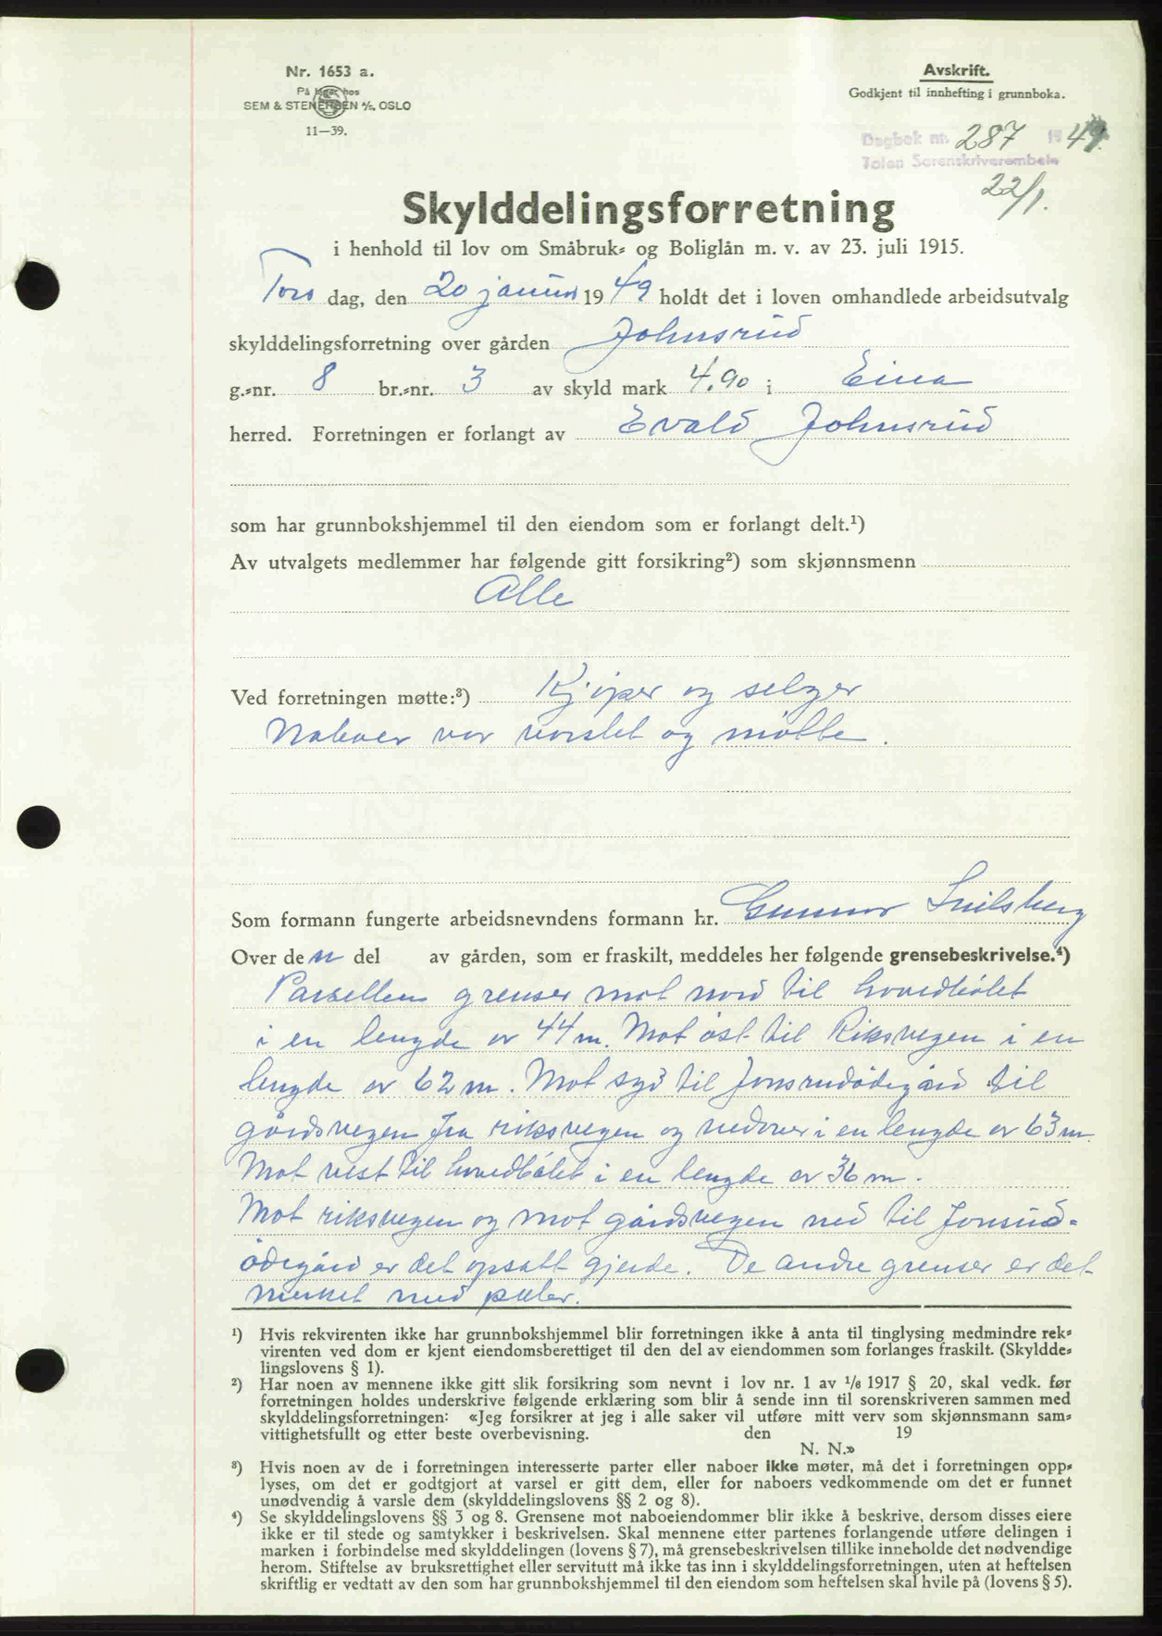 Nr. 1653 a.
På lager hos
SEM & STENERSEN A/S, OSLO
11—39.
Avskrift.
Godkjent til innhefting i grunnboka.
Dagbok nr. 287 1949.
Toten Sorenskriverembete
22/1.
Skylddelingsforretning
i henhold til lov om Småbruk= og Boliglån m. v. av 23. juli 1915.
Tors dag, den 20 januar 1949 holdt det i loven omhandlede arbeidsutvalg
skylddelingsforretning over gården Johnsrud
g.=nr. 8 br.=nr. 3 av skyld mark 4.90 i Eina
herred. Forretningen er forlangt av Evald Johnsrud
som har grunnbokshjemmel til den eiendom som er forlangt delt.¹)
Av utvalgets medlemmer har følgende gitt forsikring²) som skjønnsmenn
Alle
Ved forretningen møtte:³) Kjøper og selger
Naboer var varslet og møtte.
Som formann fungerte arbeidsnevndens formann hr. Gunnar
Over den del av gården, som er fraskilt, meddeles her følgende grensebeskrivelse.⁴)
Parsellen grenser mot nord til hovedbølet
i en lengde av 44 m. Mot øst til Riksvegen i en
lengde av 62 m. Mot syd til Jonsrudødegård til
gårdsvegen fra riksvegen og nedover i en lengde av 63 m.
Mot vest til hovedbølet i en lengde av 36 m.
Mot riksvegen og mot gårdsvegen ned til Jonsrud=
ødegård er det opsatt gjerde. De andre grenser er det
merket med pæler.
¹) Hvis rekvirenten ikke har grunnbokshjemmel blir forretningen ikke å anta til tinglysing medmindre rek=
virenten ved dom er kjent eiendomsberettiget til den del av eiendommen som forlanges fraskilt. (Skyldde=
lingslovens § 1).
²) Har noen av mennene ikke gitt slik forsikring som nevnt i lov nr. 1 av 1/6 1917 § 20, skal vedk. før
forretningen holdes underskrive følgende erklæring som blir å sende inn til sorenskriveren sammen med
skylddelingsforretningen: «Jeg forsikrer at jeg i alle saker vil utføre mitt verv som skjønnsmann sam=
vittighetsfullt og etter beste overbevisning. den 19
N. N.»
³) Hvis noen av de i forretningen interesserte parter eller naboer ikke møter, må det i forretningen opp=
lyses, om det er godtgjort at varsel er gitt dem, eller for naboers vedkommende om det er funnet
unødvendig å varsle dem (skylddelingslovens §§ 2 og 8).
⁴) Se skylddelingslovens §§ 3 og 8. Grensene mot naboeiendommer blir ikke å beskrive, dersom disses eiere
ikke er til stede og samtykker i beskrivelsen. Skal mennene etter partenes forlangende utføre delingen i
marken i forbindelse med skylddelingen (lovens § 7), må grensebeskrivelsen tillike inneholde det nødvendige
herom. Stiftelse av bruksrettighet eller servitutt må ikke tas inn i skylddelingsforretningen, uten at heftelsen
skriftlig er vedtatt av den som har grunnbokshjemmel til den eiendom som heftelsen skal hvile på (lovens § 5).